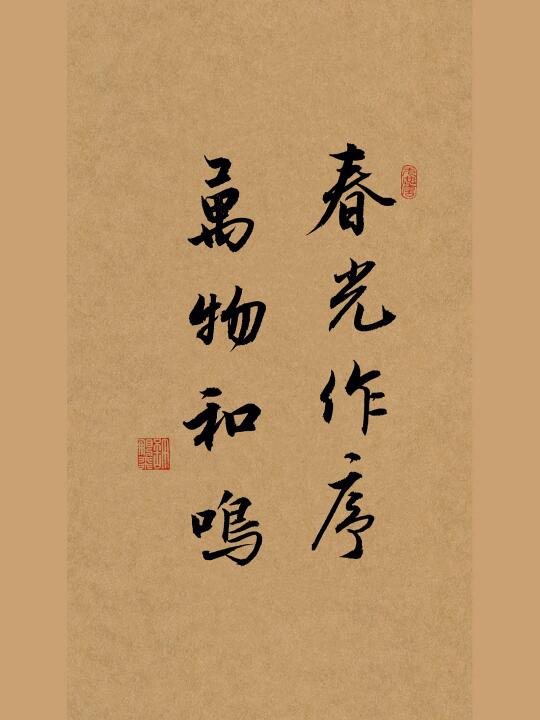 春光作序
萬物和鳴